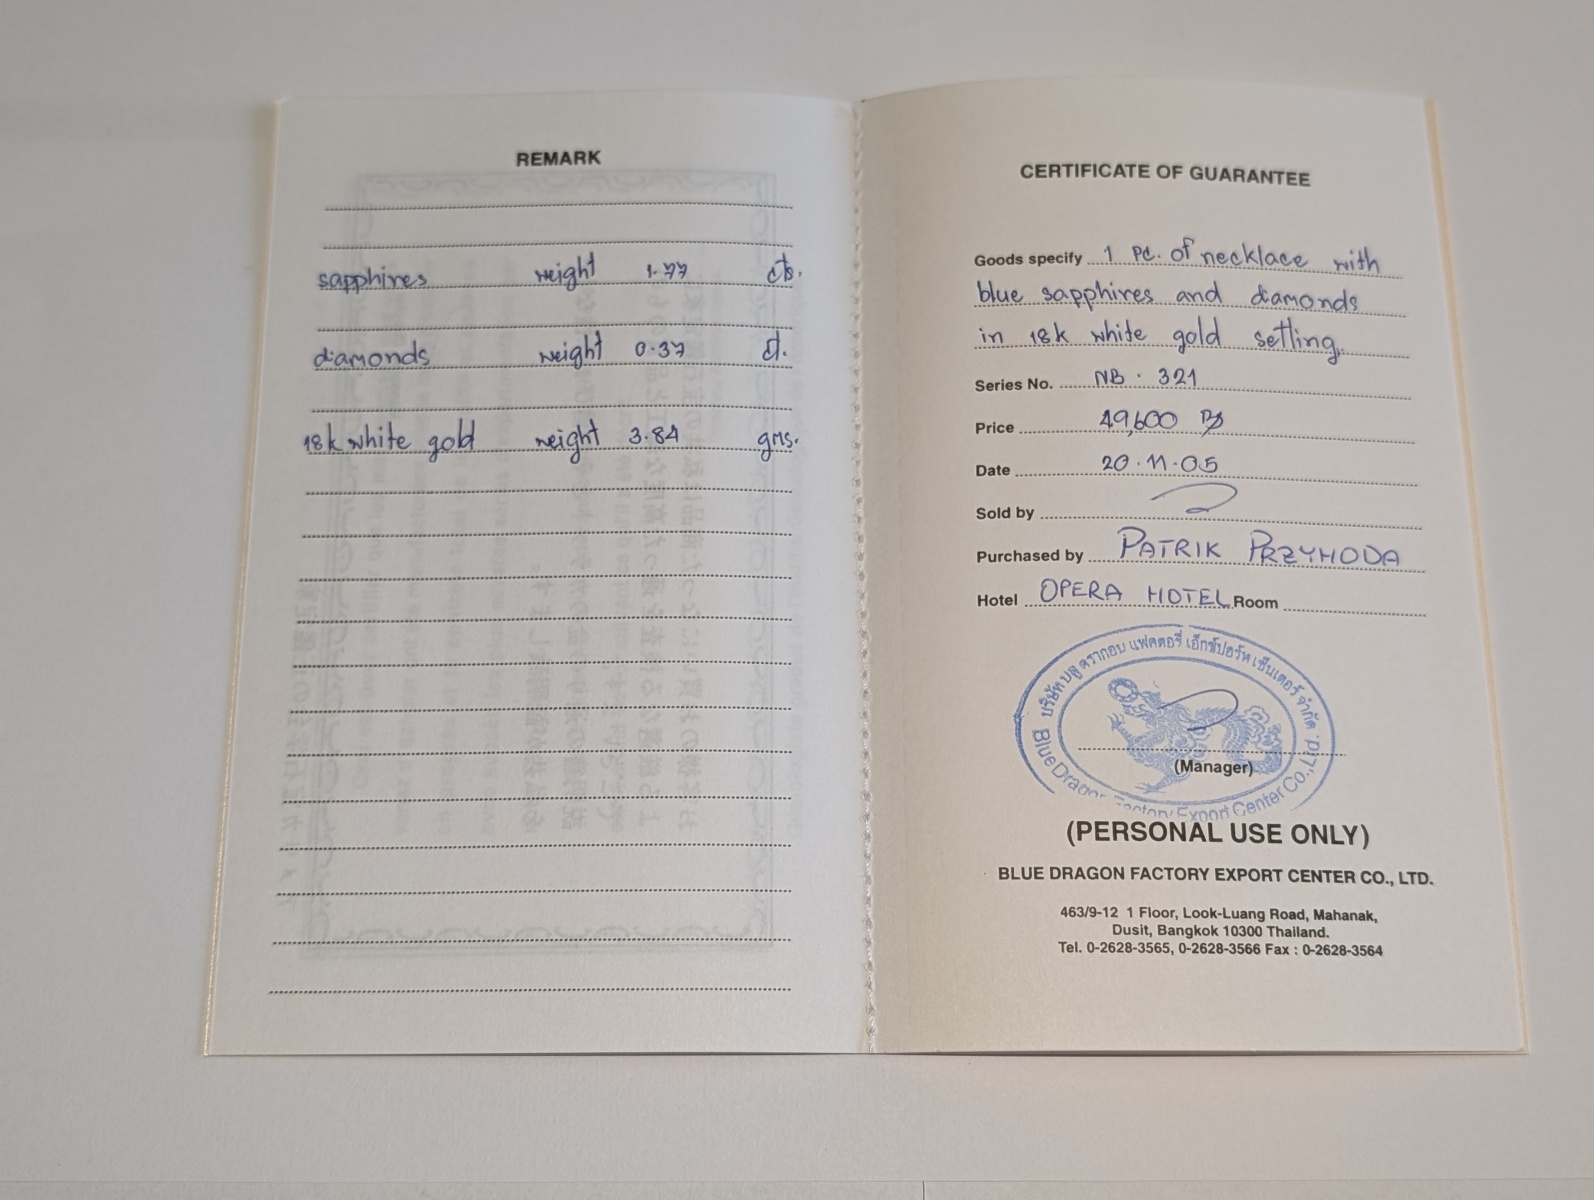 REMARK
sapphires weight 1.77 cts.
diamonds weight 0.37 ct.
18k white gold weight 3.84 gms.
CERTIFICATE OF GUARANTEE
Goods specify 1 pc. of necklace with
blue sapphires and diamonds
in 18k white gold setting.
Series No. NB . 321
Price 49,600 ฿
Date 20.11.05
Sold by
Purchased by PATRIK PRZYHODA
Hotel OPERA HOTEL Room
บริษัท บลู ดรากอน แฟคตอรี่ เอ็กซ์ปอร์ท เซ็นเตอร์ จำกัด
Blue Dragon Factory Export Center Co., Ltd.
(Manager)
(PERSONAL USE ONLY)
BLUE DRAGON FACTORY EXPORT CENTER CO., LTD.
463/9-12 1 Floor, Look-Luang Road, Mahanak,
Dusit, Bangkok 10300 Thailand.
Tel. 0-2628-3565, 0-2628-3566 Fax : 0-2628-3564